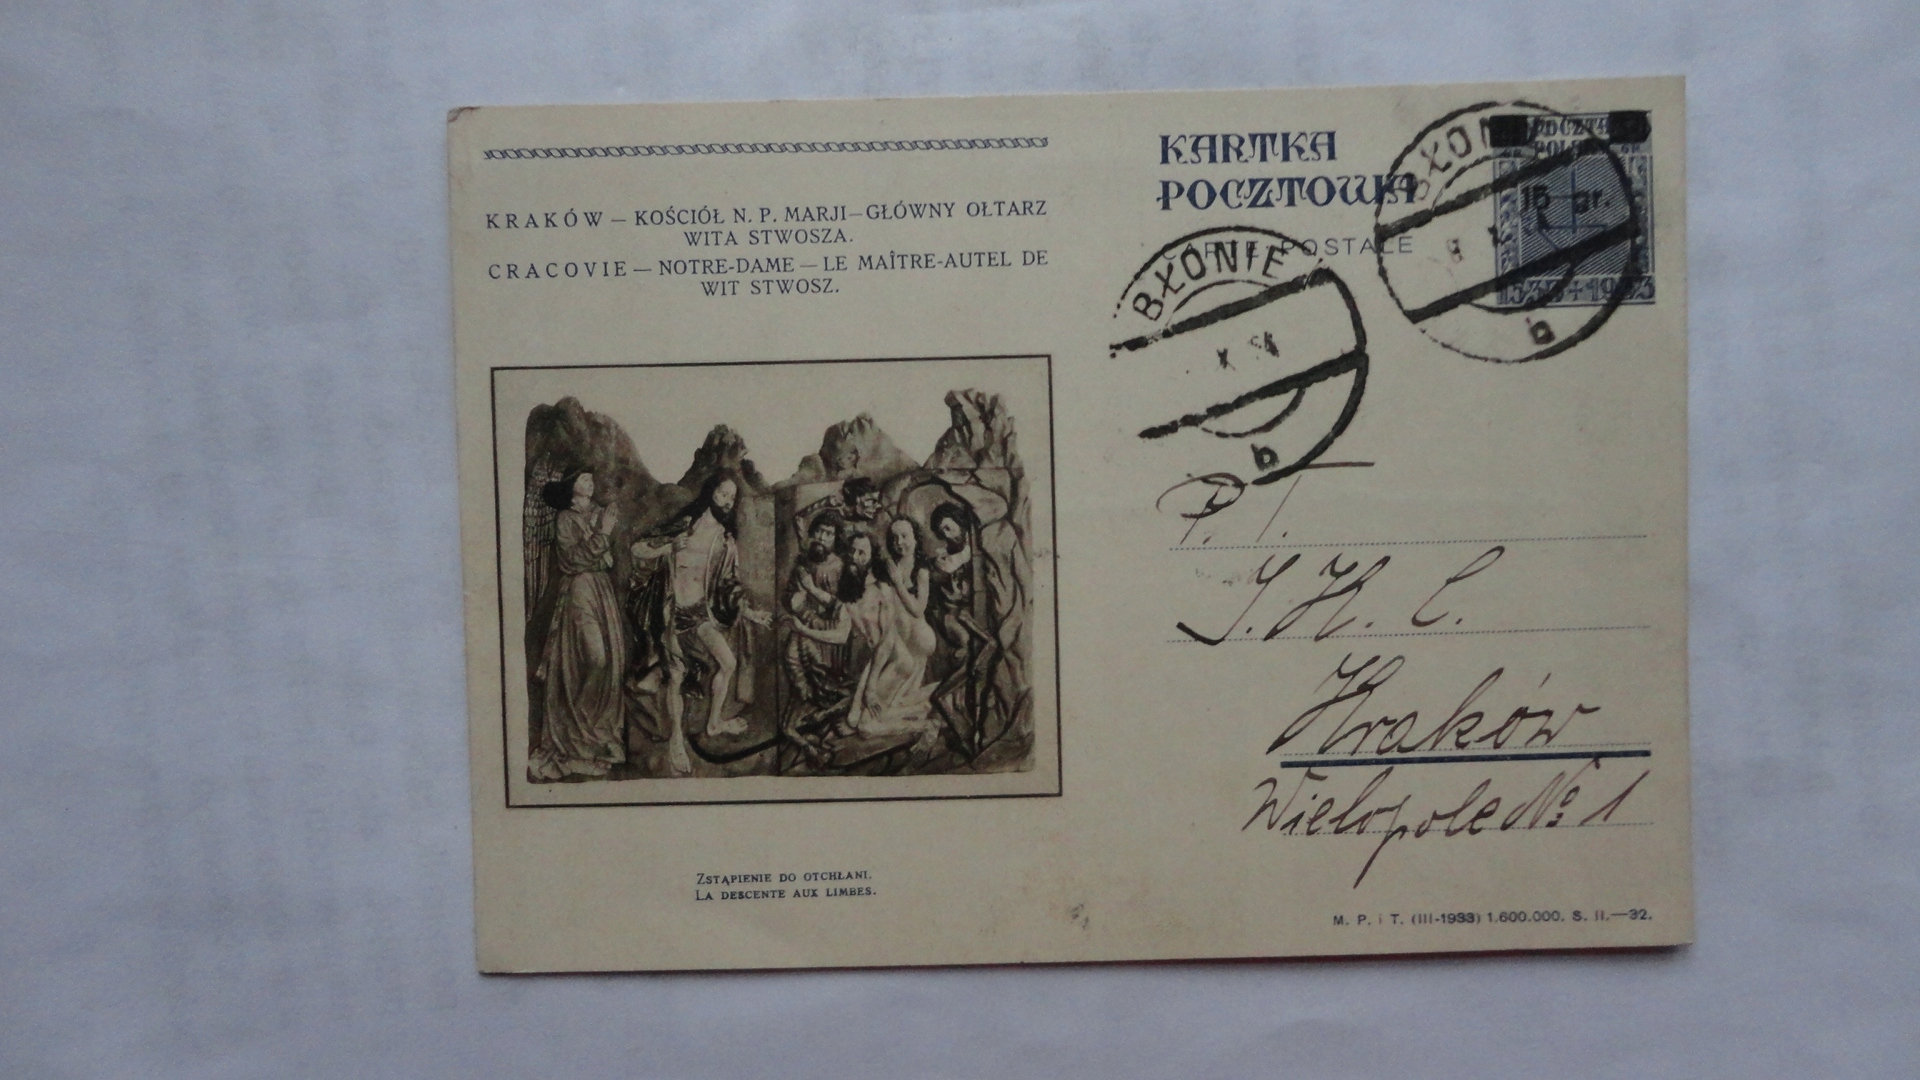 KRAKÓW — KOŚCIÓŁ N. P. MARJI — GŁÓWNY OŁTARZ
WITA STWOSZA.
CRACOVIE — NOTRE-DAME — LE MAÎTRE-AUTEL DE
WIT STWOSZ.
ZSTĄPIENIE DO OTCHŁANI.
LA DESCENTE AUX LIMBES.
KARTKA
POCZTOWA
CARTE POSTALE
POCZTA
15 gr.
1533+1933
BŁONIE
X
b
BŁONIE
X
b
P. T.
I. K. C.
Kraków
Wielopole No 1
M. P. i T. (III-1933) 1.600.000. S. II.—32.